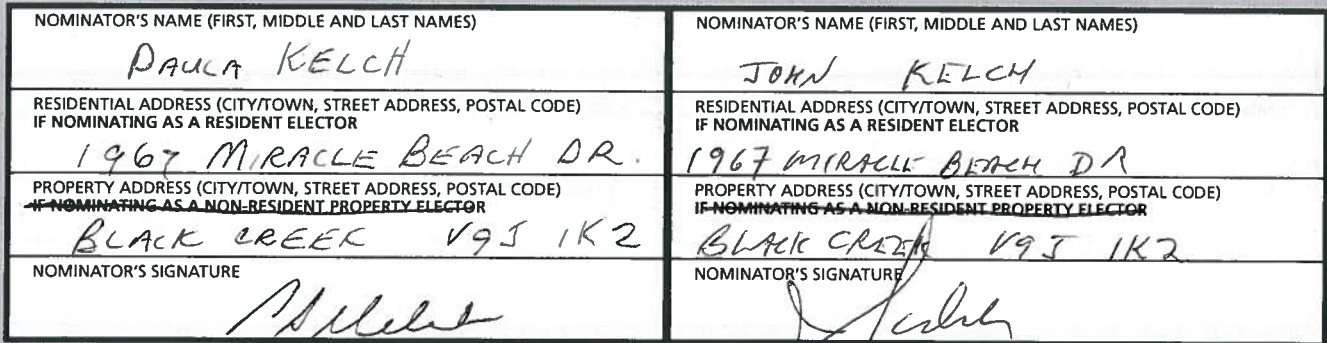 NOMINATOR'S NAME (FIRST, MIDDLE AND LAST NAMES)
PAULA KELCH
RESIDENTIAL ADDRESS (CITY/TOWN, STREET ADDRESS, POSTAL CODE)
IF NOMINATING AS A RESIDENT ELECTOR
1967 MIRACLE BEACH DR.
PROPERTY ADDRESS (CITY/TOWN, STREET ADDRESS, POSTAL CODE)
IF NOMINATING AS A NON-RESIDENT PROPERTY ELECTOR
BLACK CREEK V9J 1K2
NOMINATOR'S SIGNATURE
NOMINATOR'S NAME (FIRST, MIDDLE AND LAST NAMES)
JOHN KELCH
RESIDENTIAL ADDRESS (CITY/TOWN, STREET ADDRESS, POSTAL CODE)
IF NOMINATING AS A RESIDENT ELECTOR
1967 MIRACLE BEACH DR
PROPERTY ADDRESS (CITY/TOWN, STREET ADDRESS, POSTAL CODE)
IF NOMINATING AS A NON-RESIDENT PROPERTY ELECTOR
BLACK CREEK V9J 1K2
NOMINATOR'S SIGNATURE